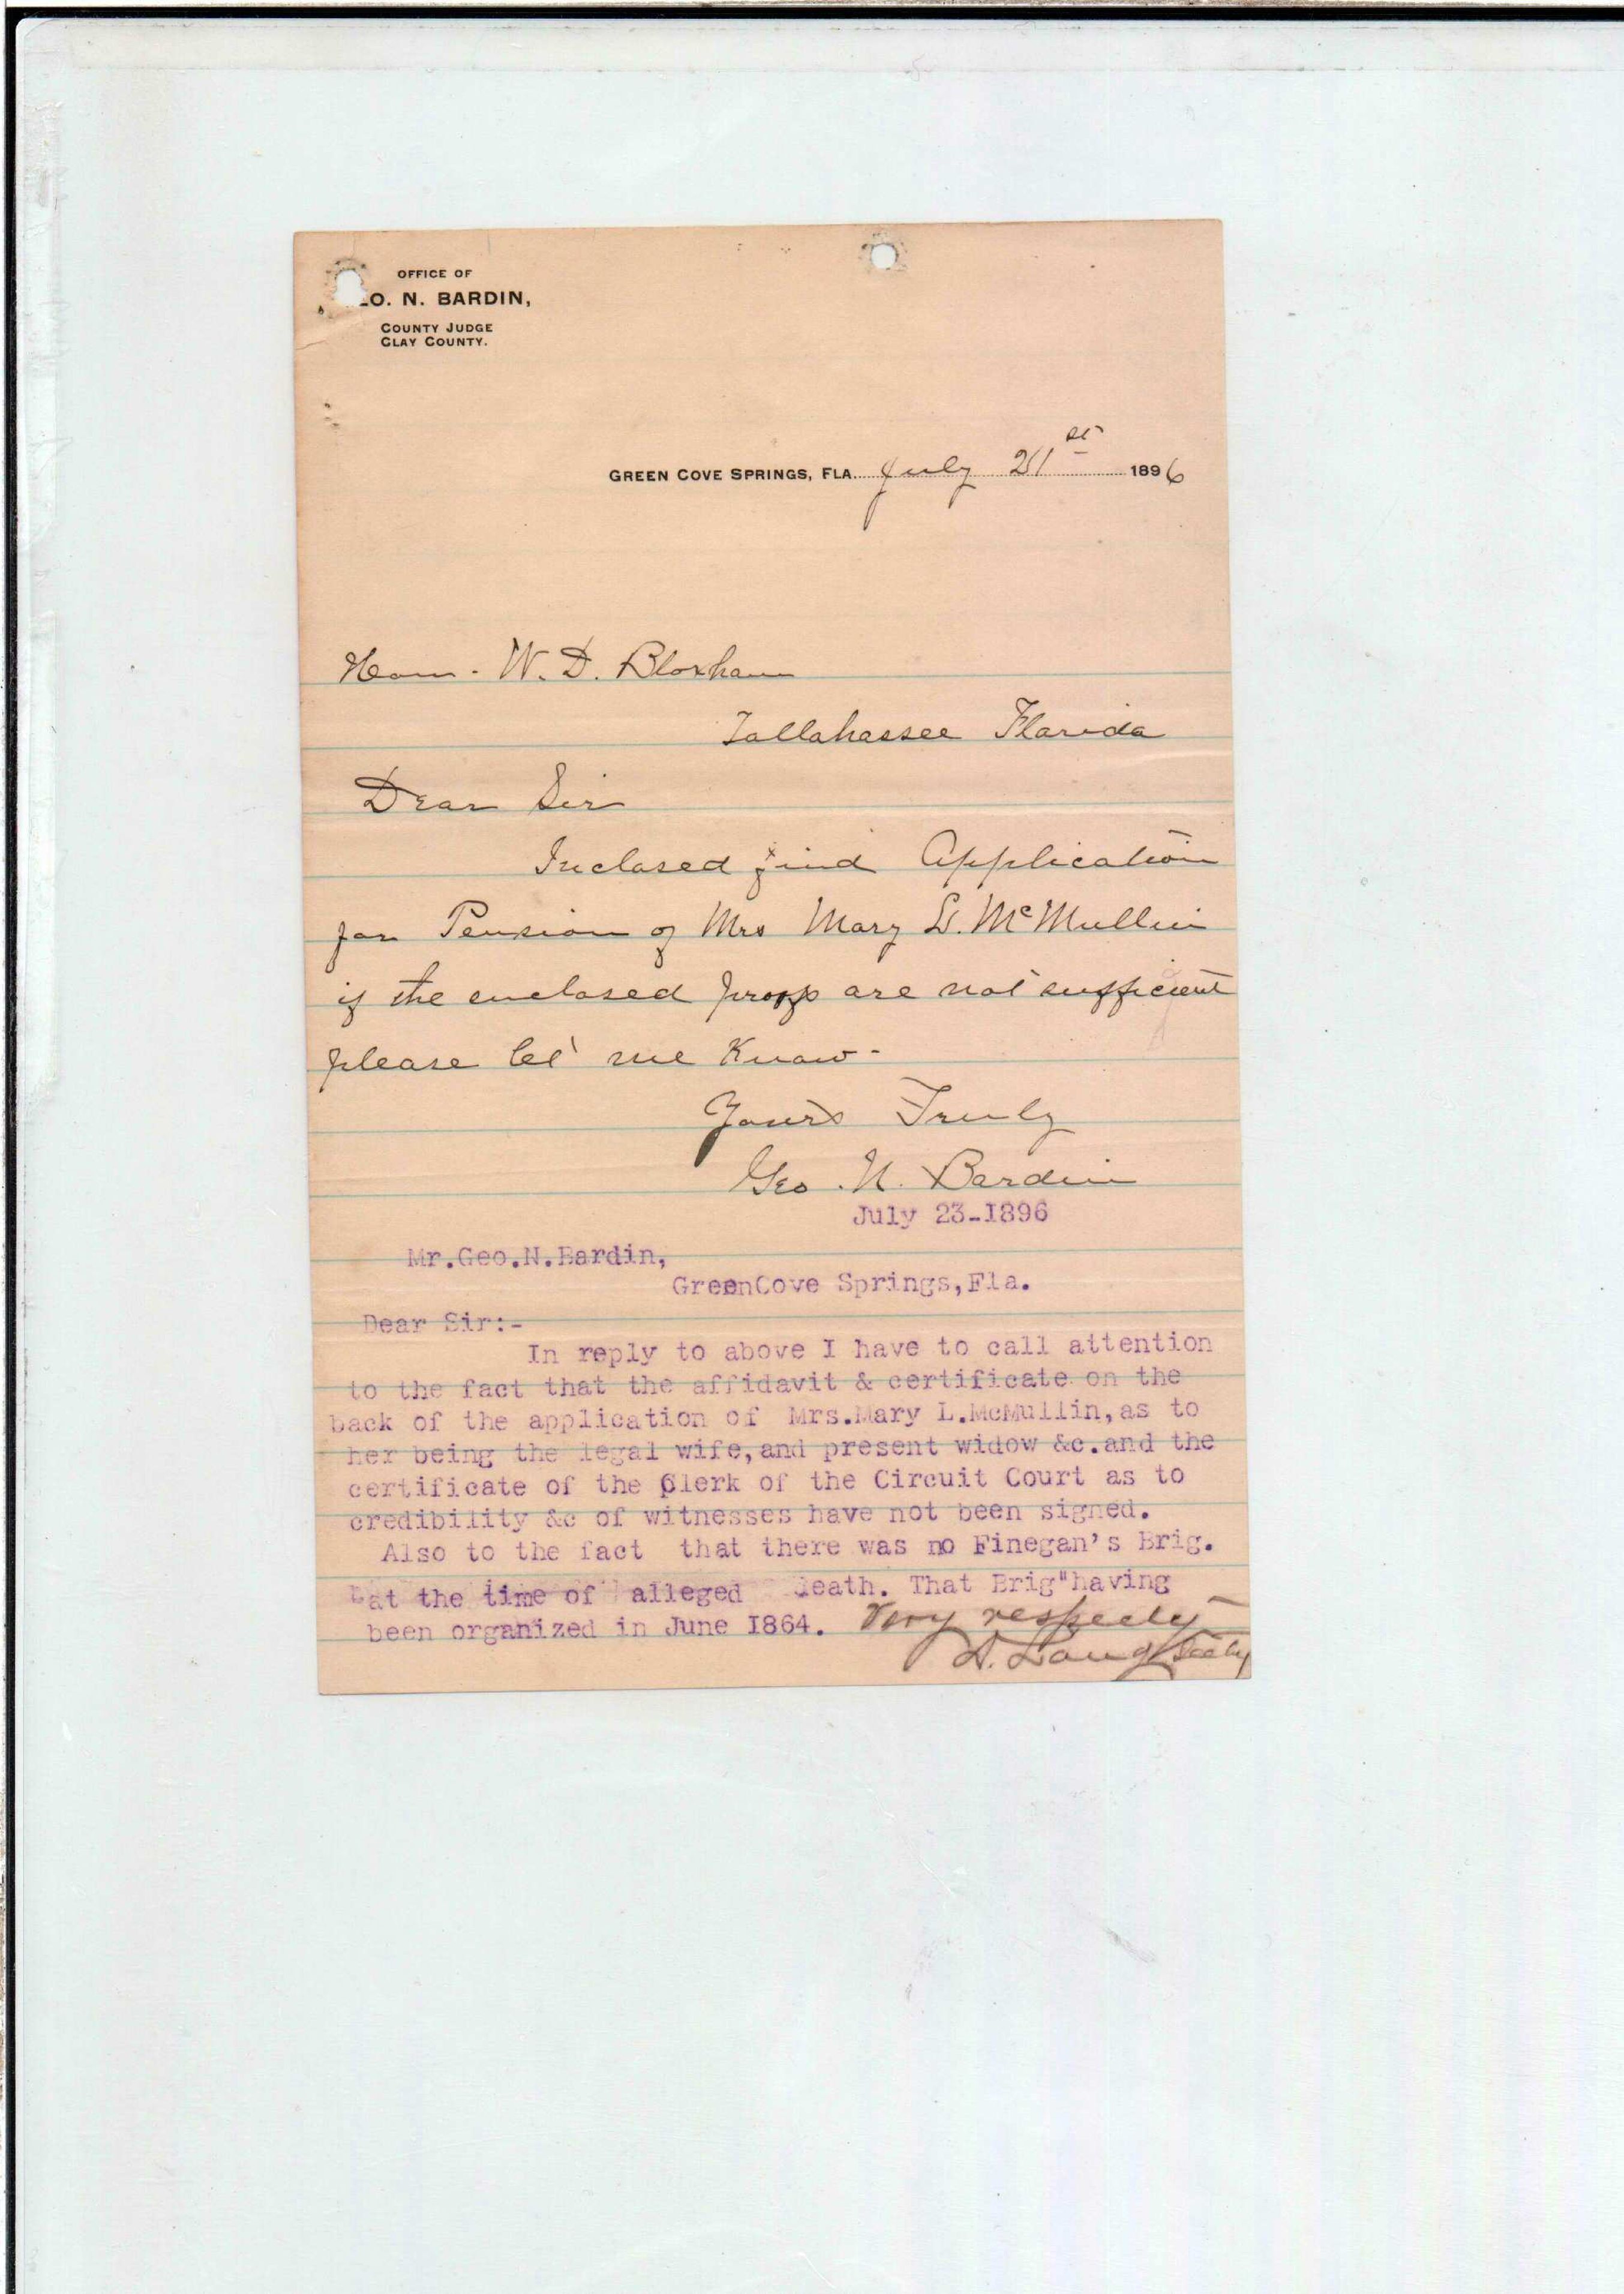 OFFICE OF
EO. N. BARDIN,
COUNTY JUDGE
CLAY COUNTY.
GREEN COVE SPRINGS, FLA. July 21st 1896
Hon. W. D. Bloxham
Tallahassee Florida
Dear Sir
Inclosed find Application
for Pension of Mrs Mary L. McMullin
if the enclosed proofs are not sufficient
please let me Know -
Yours Truly
Geo. N. Bardin
July 23-I896
Mr.Geo.N.Bardin,
GreenCove Springs,Fla.
Dear Sir:-
In reply to above I have to call attention
to the fact that the affidavit & certificate on the
back of the application of Mrs.Mary L.McMullin,as to
her being the legal wife,and present widow &c.and the
certificate of the Clerk of the Circuit Court as to
credibility &c of witnesses have not been signed.
Also to the fact that there was no Finegan's Brig.
at the time of alleged death. That Brig"having
been organized in June I864. Very respecty
D. Lang Secty